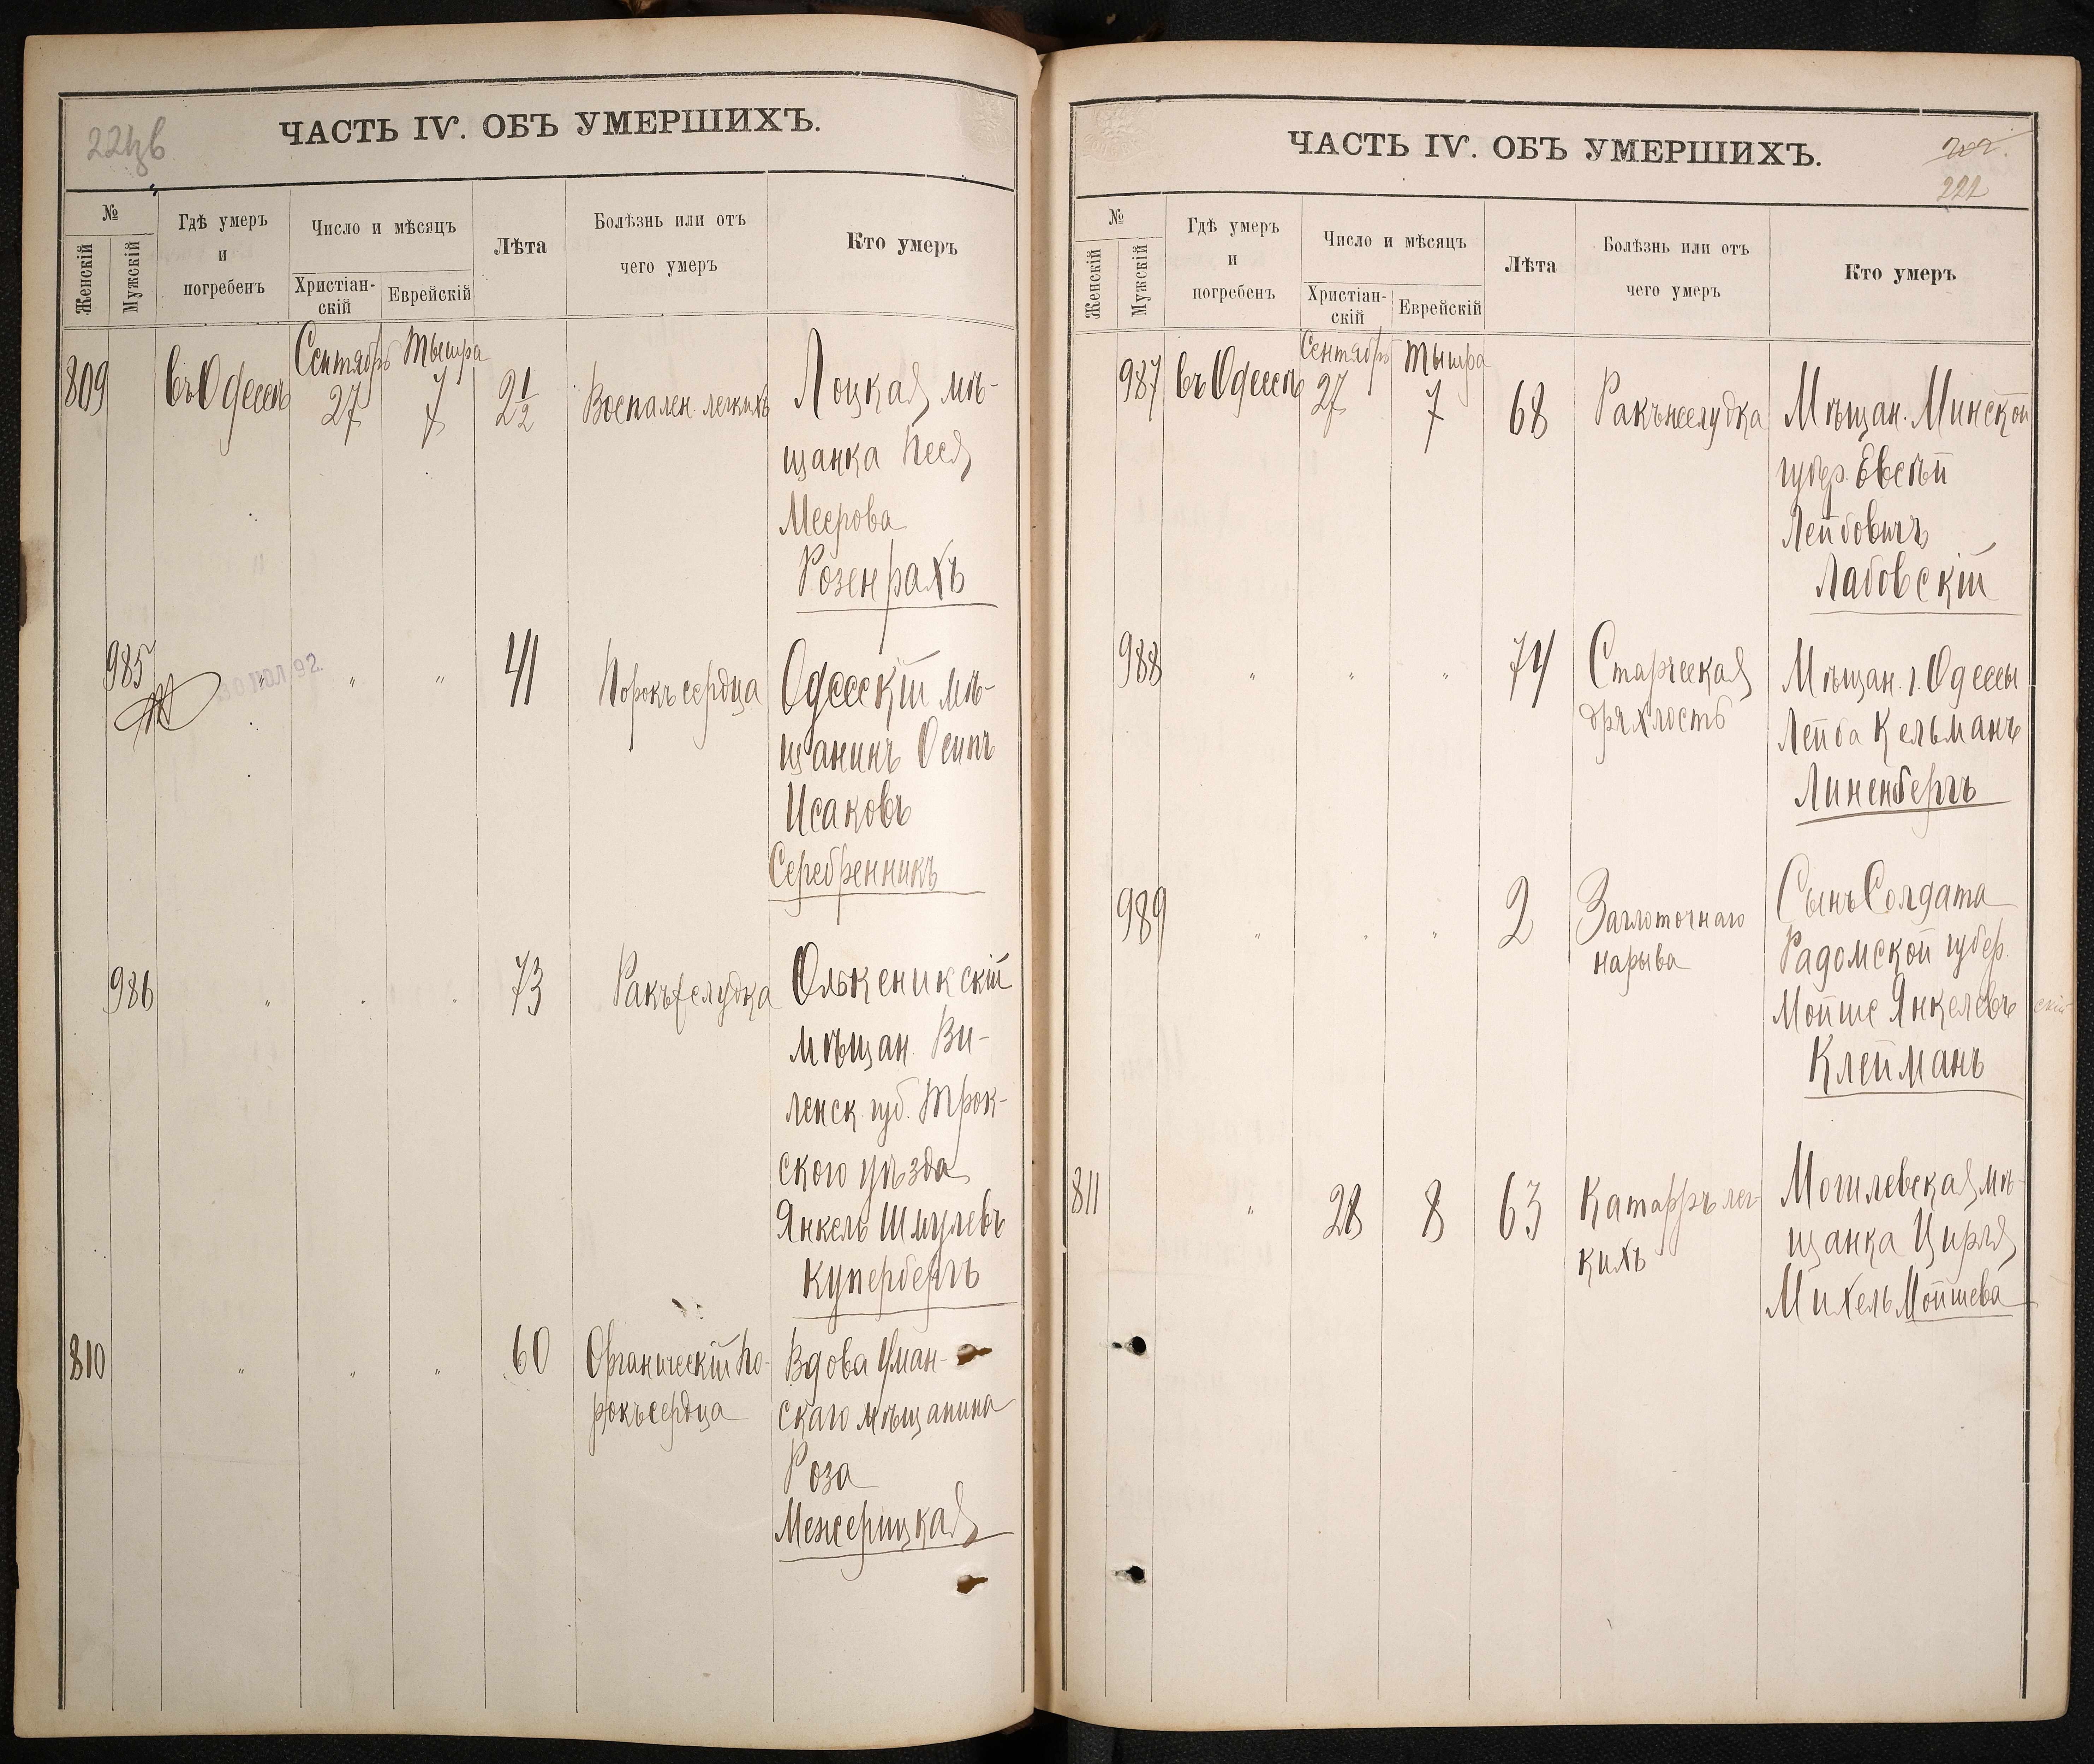 ЧАСТЬ IV. ОБЪ УМЕРШИХЪ.
№
Женскій
Мужскій
Гдѣ умеръ
и
погребенъ
Число и мѣсяцъ
Христіан-
скій
Еврейскій
Лѣта
Болѣзнь или отъ
чего умеръ
Кто умеръ
809 въ Одессѣ Сентябрь 27 Тышра 7 2 1/2 Воспален. легкихъ Лоцкая мѣ-
щанка Песя
Меерова
Розенрахъ
985 30 ІЮЛ 92. " " " 41 Порокъ сердца Одесскій мѣ-
щанинъ Осипъ
Исаковъ
Серебренникъ
986 " " " 73 Ракъ желудка Олькеникскій
мѣщан. Ви-
ленск. губ. Трок-
ского уѣзда
Янкель Шмулевъ
Купербергъ
810 " " " 60 Органическій по- Вдова Уман-
рокъ сердца скаго мѣщанина
Роза
Межерицкая
ЧАСТЬ IV. ОБЪ УМЕРШИХЪ.
222
№
Женскій
Мужскій
Гдѣ умеръ
и
погребенъ
Число и мѣсяцъ
Христіан-
скій
Еврейскій
Лѣта
Болѣзнь или отъ
чего умеръ
Кто умеръ
987 въ Одессѣ Сентябрь 27 Тышра 7 68 Ракъ желудка Мѣщан. Минской
губер. Евсѣй
Лейбовичъ
Лабовскій
988 " " " 74 Старческая Мѣщан. г. Одессы
дряхлость Лейба Кельманъ
Линенбергъ
989 " " " 2 Заглоточнаго Сынъ Солдата
нарыва Радомской губер.
Мойше Янкелевъ
Клейманъ
811 " 28 8 63 Катарръ лег- Могилевская мѣ-
кихъ щанка Цирля
Михель Мойшева